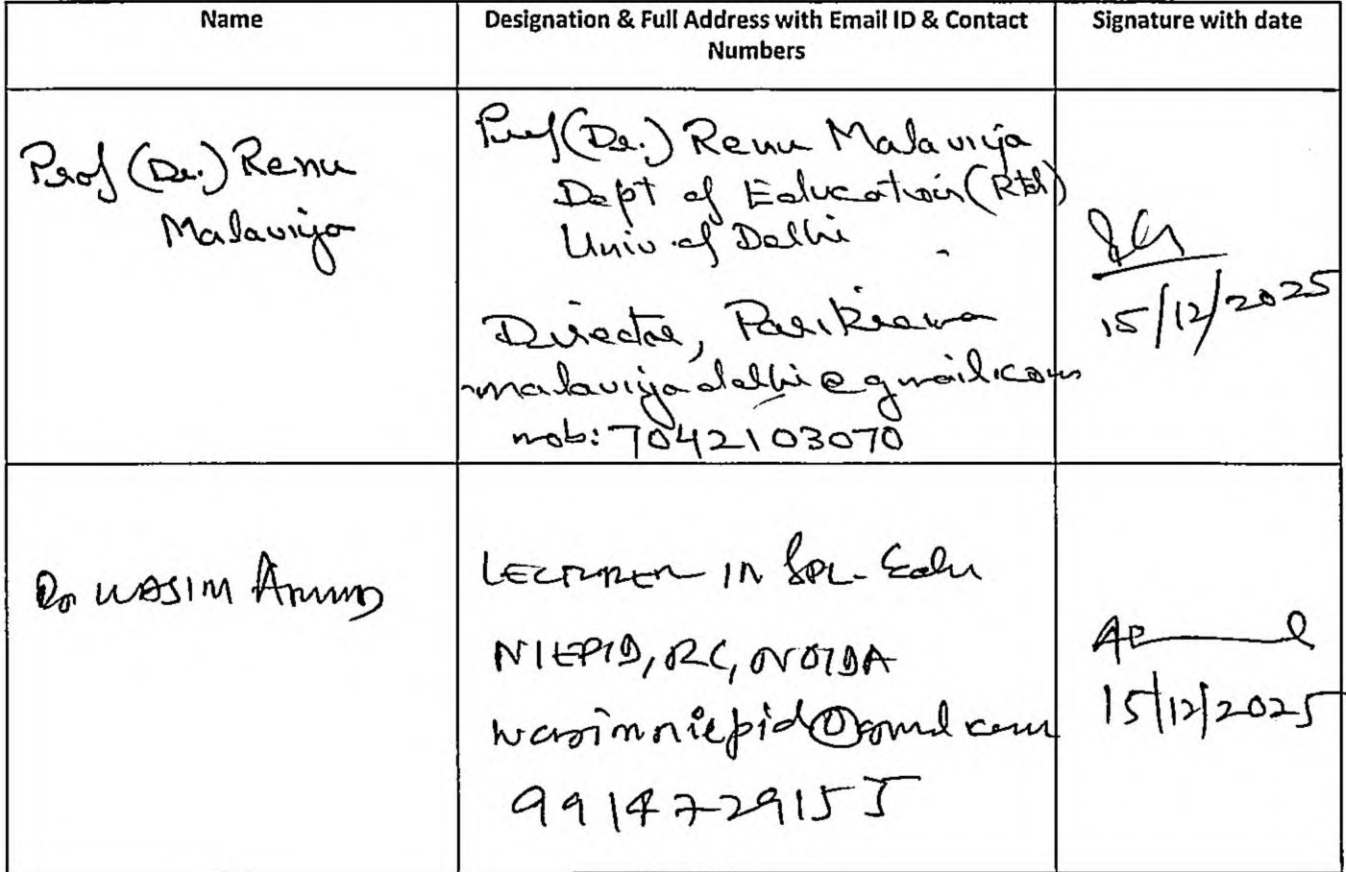 Name
Designation & Full Address with Email ID & Contact
Numbers
Signature with date
Prof (Dr.) Renu
Malaviya
Prof (Dr.) Renu Malaviya
Dept of Education (Rtd)
Univ of Delhi
Director, Parikrama
malaviyadelhi@gmail.com
mob: 7042103070
15/12/2025
Dr WASIM
LECTURER IN SPL. Edu
NIEPID, RC, NOIDA
wasimniepid@gmail.com
9914729155
15/12/2025